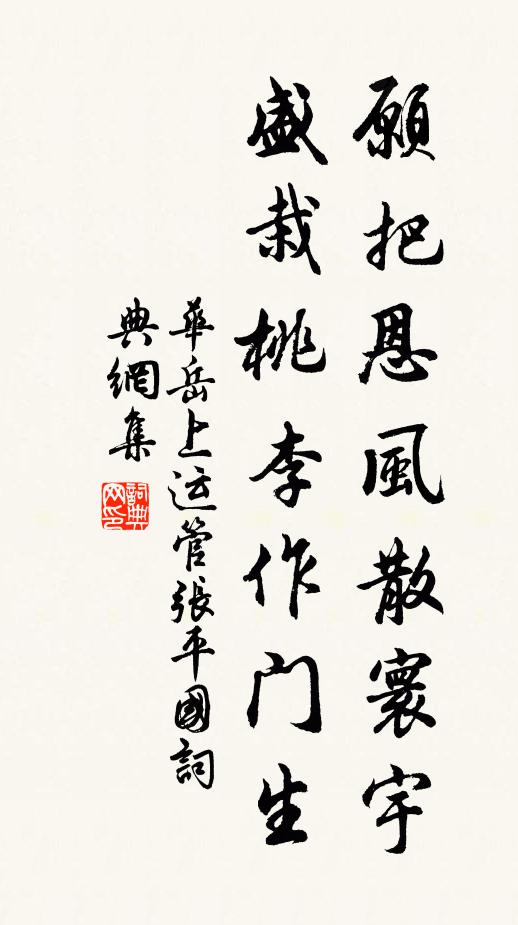 願把恩風散寰宇
盛栽桃李作門生
華岳上运管張平國詞
典網集
詞典网印